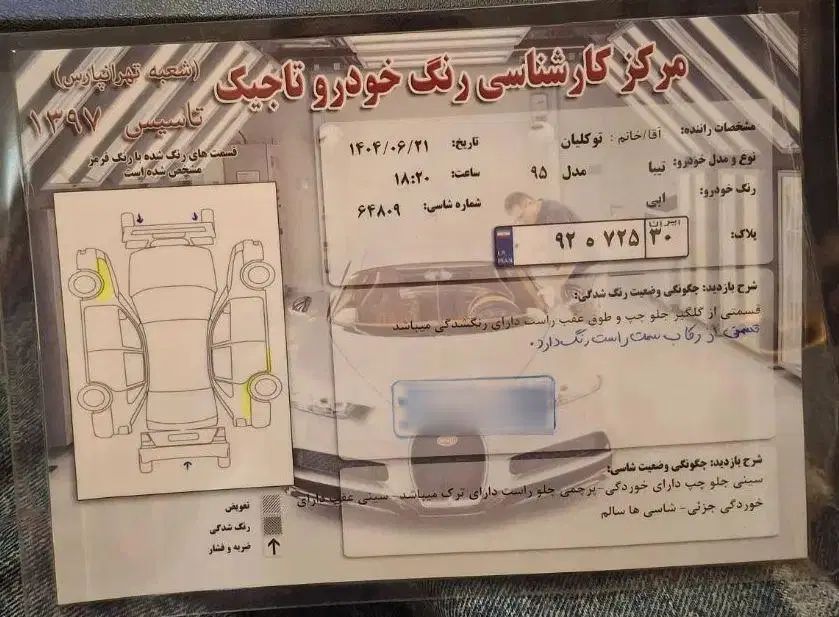 مرکز کارشناسی رنگ خودرو تاجیک
(شعبه تهرانپارس)
تاسیس ۱۳۹۷
قسمت های رنگ شده با رنگ قرمز
مشخص شده است
مشخصات راننده: آقا/خانم : توکلیان
تاریخ: ۱۴۰۴/۰۶/۲۱
نوع و مدل خودرو: تیبا مدل ۹۵
ساعت: ۱۸:۲۰
رنگ خودرو: ابی
شماره شاسی: ۶۴۸۰۹
پلاک:
۹۲ ۵ ۷۲۵ ایران ۳۰
I.R.
IRAN
شرح بازدید: چگونگی وضعیت رنگ شدگی:
قسمتی از گلگیر جلو چپ و طوق عقب راست دارای رنگشدگی میباشد
قسمتی از رکاب سمت راست رنگ دارد.
شرح بازدید: چگونگی وضعیت شاسی:
سینی جلو چپ دارای خوردگی -پرچمی جلو راست دارای ترک میباشد - سینی عقب دارای
خوردگی جزئی- شاسی ها سالم
تعویض
رنگ شدگی
ضربه و فشار